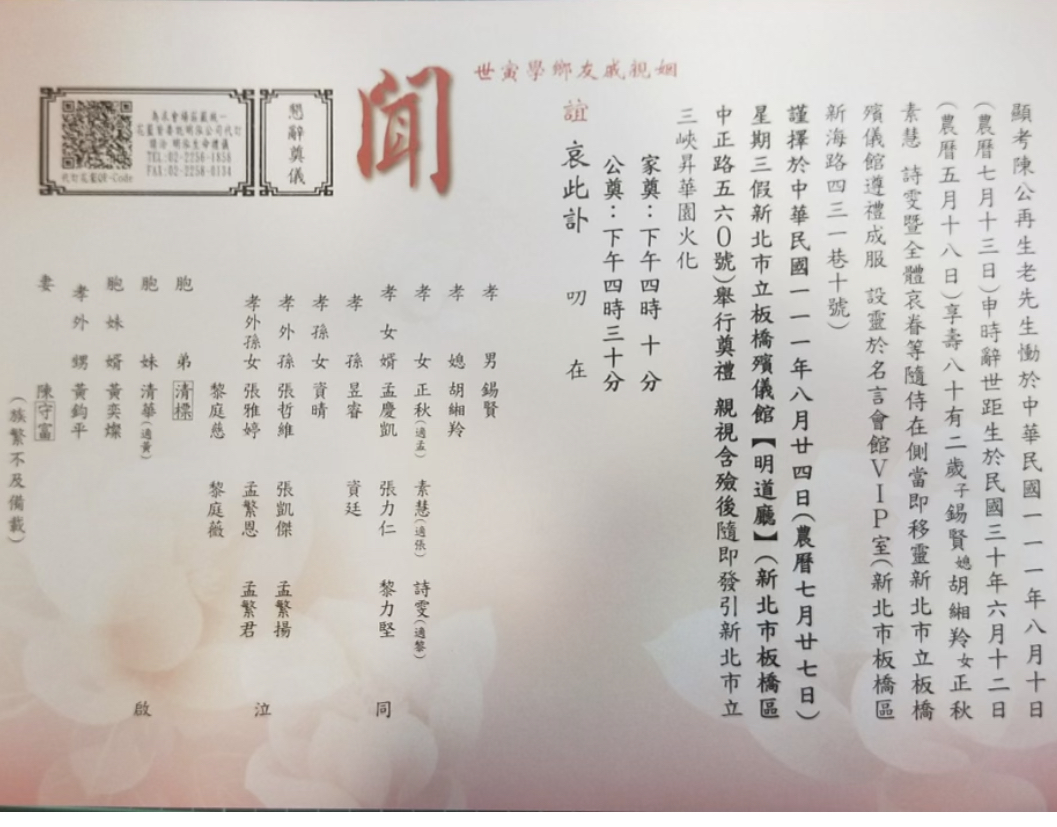 顯考陳公再生老先生慟於中華民國一一一年八月十日
(農曆七月十三日)申時辭世距生於民國三十年六月十二日
(農曆五月十八日)享壽八十有二歲子錫賢媳胡緗羚女正秋
素慧 詩雯暨全體哀眷等隨侍在側當即移靈新北市立板橋
殯儀館遵禮成服 設靈於名言會館VIP室(新北市板橋區
新海路四三一巷十號)
謹擇於中華民國一一一年八月廿四日(農曆七月廿七日)
星期三假新北市立板橋殯儀館【明道廳】(新北市板橋區
中正路五六0號)舉行奠禮 親視含殮後隨即發引新北市立
三峽昇華園火化
家奠:下午四時 十 分
公奠:下午四時三十分
叨 在
哀此訃
姻親戚友鄉學寅世
誼
聞
孝 男 錫賢
孝 媳 胡緗羚
孝 女 正秋(適孟) 素慧(適張) 詩雯(適黎)
孝 女 婿 孟慶凱 張力仁 黎力堅
孝 孫 昱睿 資廷
孝 孫 女 資晴
孝 外 孫 張哲維 張凱傑 孟繁揚
孝外孫女 張雅婷 孟繁恩 孟繁君
黎庭慈 黎庭薇
胞 弟 清標
胞 妹 清華(適黃)
胞 妹 婿 黃奕燦
孝 外 甥 黃鈞平
妻 陳守富
(族繁不及備載)
同 泣 啟
懇辭奠儀
為求會場莊嚴統一
花籃
代訂
明
生命禮儀
TEL:02-2256-1858
FAX:02-2256-0134
代訂花籃QR-Code